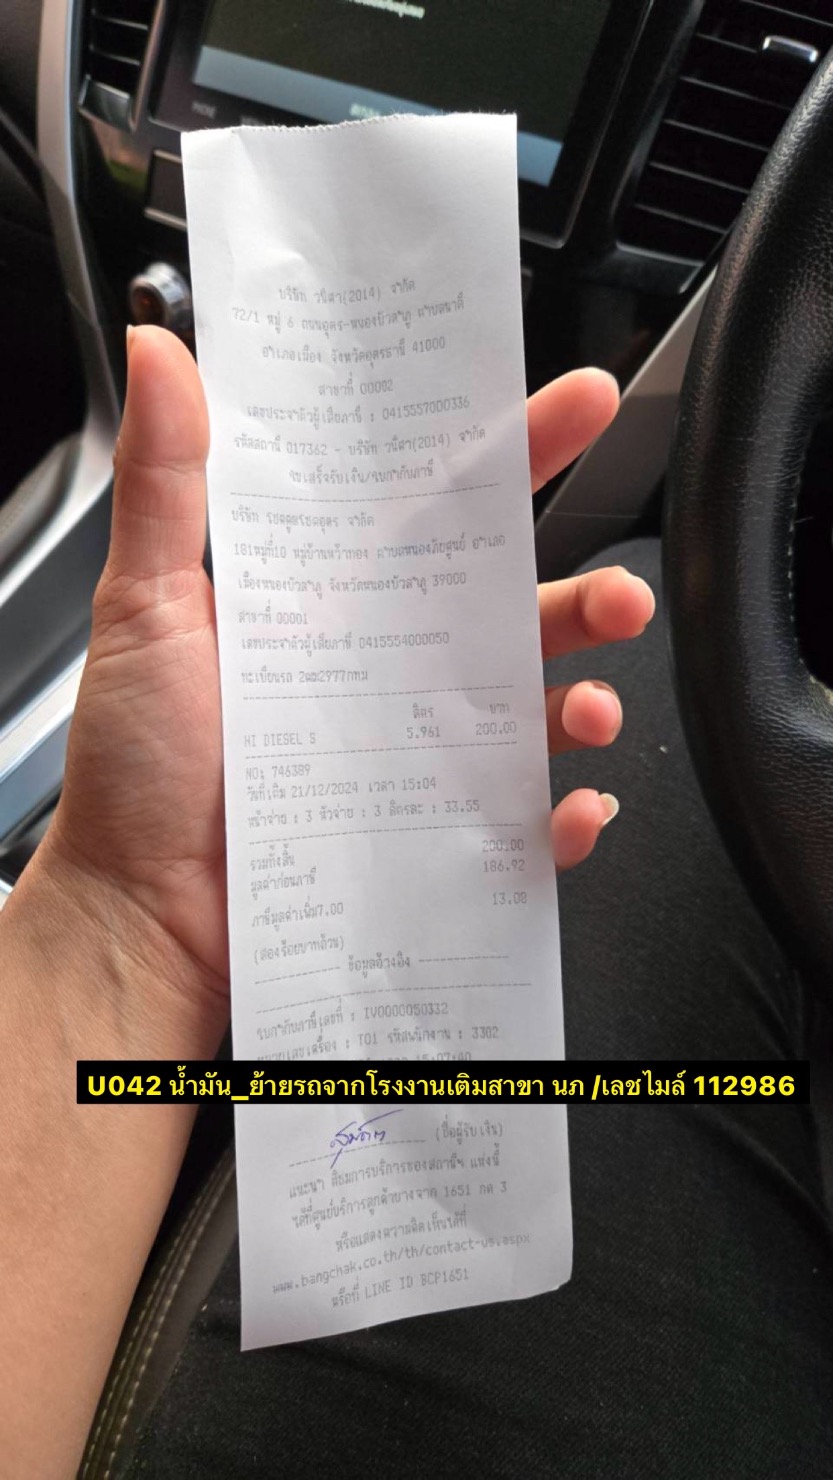 บริษัท วนิดา(2014) จำกัด
72/1 หมู่ 6 ถนนอุดร-หนองบัวลำภู ตำบลนาดี
อำเภอเมือง จังหวัดอุดรธานี 41000
สาขาที่ 00002
เลขประจำตัวผู้เสียภาษี : 0415557000336
รหัสสถานี 017362 - บริษัท วนิดา(2014) จำกัด
ใบเสร็จรับเงิน/ใบกำกับภาษี
บริษัท จำกัด
181หมู่ที่10 หมู่บ้านหว้าทอง ตำบลหนองภัยศูนย์ อำเภอ
เมืองหนองบัวลำภู จังหวัดหนองบัวลำภู 39000
สาขาที่ 00001
เลขประจำตัวผู้เสียภาษี 0415554000050
ทะเบียนรถ
ลิตร บาท
HI DIESEL S 5.961 200.00
NO: 746389
วันที่เติม 21/12/2024 เวลา 15:04
หน้าจ่าย : 3 หัวจ่าย : 3 ลิตรละ : 33.55
รวมทั้งสิ้น 200.00
มูลค่าก่อนภาษี 186.92
ภาษีมูลค่าเพิ่ม7.00 13.08
(สองร้อยบาทถ้วน)
ข้อมูลอ้างอิง
ใบกำกับภาษีเลขที่ : IV0000050332
หมายเลขเครื่อง : T01 รหัสพนักงาน : 3302
U042 น้ำมัน_ย้ายรถจากโรงงานเติมสาขา นภ /เลชไมล์ 112986
(ชื่อผู้รับเงิน)
แนะนำ ติชมการบริการของสถานีฯ แห่งนี้
ได้ที่ศูนย์บริการลูกค้าบางจาก 1651 กด 3
หรือแสดงความคิดเห็นได้ที่
www.bangchak.co.th/th/contact-us.aspx
หรือที่ LINE ID BCP1651